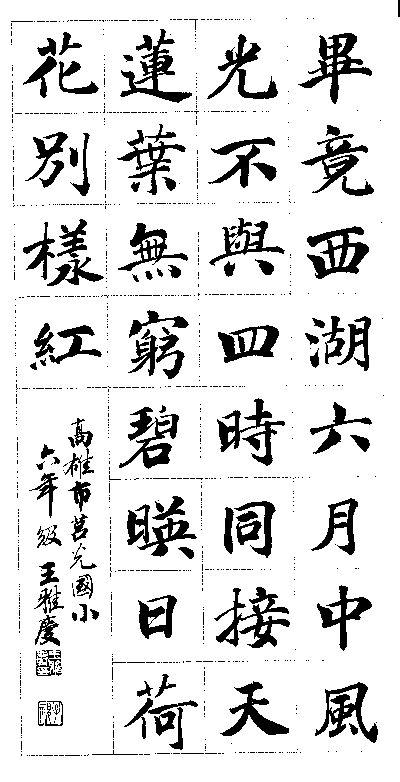 畢竟西湖六月中風
光不與四時同接天
蓮葉無窮碧暎日荷
花別樣紅
高雄市莒光國小
六年級王雅慶